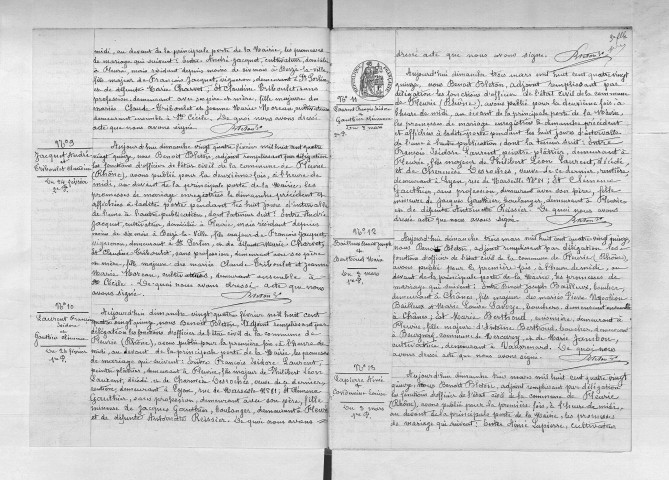 midi, au devant de la principale porte de la Mairie, les promesses
de mariage qui suivent : Entre André Jacquet, cultivateur, domicilié
à Fleurie, mais résidant depuis moins de six mois à Berzé-la-ville,
fils majeur de François Jacquet, vigneron, demeurant à
et de défunte Marie Charvet, et Claudine Triboulet, sans
profession, demeurant avec ses père et mère, fille majeure du
mariage Claude Triboulet et Jeanne Marie Moreau
demeurant ensemble à Ste Cécile. De quoi nous avons dressé
acte que nous avons signé.
No 9
Jacquet André
et
Triboulet Claudine
Du 24 février
2e P.
Aujourd'hui dimanche vingt quatre février mil huit cent quatre
vingt quinze, nous Benoit Bleton, adjoint remplissant par délégation
les fonctions d'officier de l'état civil de la commune de Fleurie
(Rhône), avons publié pour la deuxième fois, à l'heure de
midi, au devant de la principale porte de la Mairie, les
promesses de mariage enregistrées le dimanche précédent et
affichées à ladite porte pendant les huit jours d'intervalle
de l'une à l'autre publication, dont la teneur suit : Entre André
Jacquet, cultivateur, domicilié à Fleurie, mais résidant depuis
moins de six mois à Berzé-la-Ville, fils majeur de François Jacquet,
vigneron, demeurant à et de défunte Marie Charvet,
et Claudine Triboulet, sans profession, demeurant avec ses père
et mère, fille majeure des mariés Claude Triboulet et Jeanne
Marie Moreau, demeurant ensemble à
Ste Cécile. De quoi nous avons dressé acte que nous
avons signé.
No 10
Laurent François
Isidore
et
Gauthier Climence
Du 24 février
1re P.
Aujourd'hui dimanche vingt quatre février mil huit cent
quatre vingt quinze, nous Benoit Bleton, adjoint remplissant par
délégation les fonctions d'officier de l'état civil de la commune de
Fleurie (Rhône), avons publié pour la première fois à l'heure de
midi, au devant de la principale porte de la Mairie, les promesses
de mariage qui suivent : Entre François Isidore Laurent,
peintre plâtrier, demeurant à Fleurie, fils majeur de Philibert Léon
Laurent, décédé, et de
demeurant à Lyon, rue de Marseille No 81, et Climence
Gauthier, sans profession, demeurant avec son père, fille
mineure de Jacques Gauthier, boulanger, demeurant à Fleurie
et de défunte Antoinette Reissier. De quoi nous avons
dressé acte que nous avons signé.
No 11
Laurent François Isidore
et
Gauthier Climence
Du 3 mars
2e P.
Aujourd'hui dimanche trois mars mil huit cent quatre vingt
quinze, nous Benoit Bleton, adjoint remplissant par
délégation les fonctions d'officier de l'état civil de la commune
de Fleurie (Rhône), avons publié pour la deuxième fois, à
l'heure de midi, au devant de la principale porte de la Mairie,
les promesses de mariage enregistrées le dimanche précédent
et affichées à ladite porte pendant les huit jours d'intervalle
de l'une à l'autre publication dont la teneur suit : Entre
François Isidore Laurent, peintre plâtrier, demeurant à
Fleurie, fils majeur de Philibert Léon Laurent, décédé,
et de
demeurant à Lyon, rue de Marseille No 81, et Climence
Gauthier, sans profession, demeurant avec son père, fille
mineure de Jacques Gauthier, boulanger, demeurant à Fleurie
et de défunte Antoinette Reissier. De quoi nous avons
dressé acte que nous avons signé.
No 12
Bailleux Benoit Joseph
et
Berthoud Marie
Du 3 mars
1re P.
Aujourd'hui dimanche trois mars mil huit cent quatre vingt quinze,
nous Benoit Bleton, adjoint remplissant par délégation, les
fonctions d'officier de l'état civil de la commune de Fleurie (Rhône),
avons publié pour la première fois, à l'heure de midi, au
devant de la principale porte de la Mairie, les promesses de
mariage qui suivent : Entre Benoit Joseph Bailleux, boucher,
demeurant à Chânes, fils majeur des mariés Pierre Napoléon
Bailleux et Marie Louise, bouchers, demeurant ensemble
à Chânes, et Marie Berthoud, demeurant à
Fleurie, fille majeure d'Antoine Berthoud, demeurant
à et de Marie Jambon,
cultivatrice, demeurant à De quoi nous
avons dressé acte que nous avons signé.
No 13
Lapierre Aimé
et
Du 3 mars
1re P.
Aujourd'hui dimanche trois mars mil huit cent quatre vingt
quinze, nous Benoit Bleton, adjoint remplissant par délégation
les fonctions d'officier de l'état civil de la commune de Fleurie
(Rhône), avons publié pour la première fois, à l'heure de midi,
au devant de la principale porte de la Mairie, les promesses
de mariage qui suivent : Entre Aimé Lapierre, cultivateur